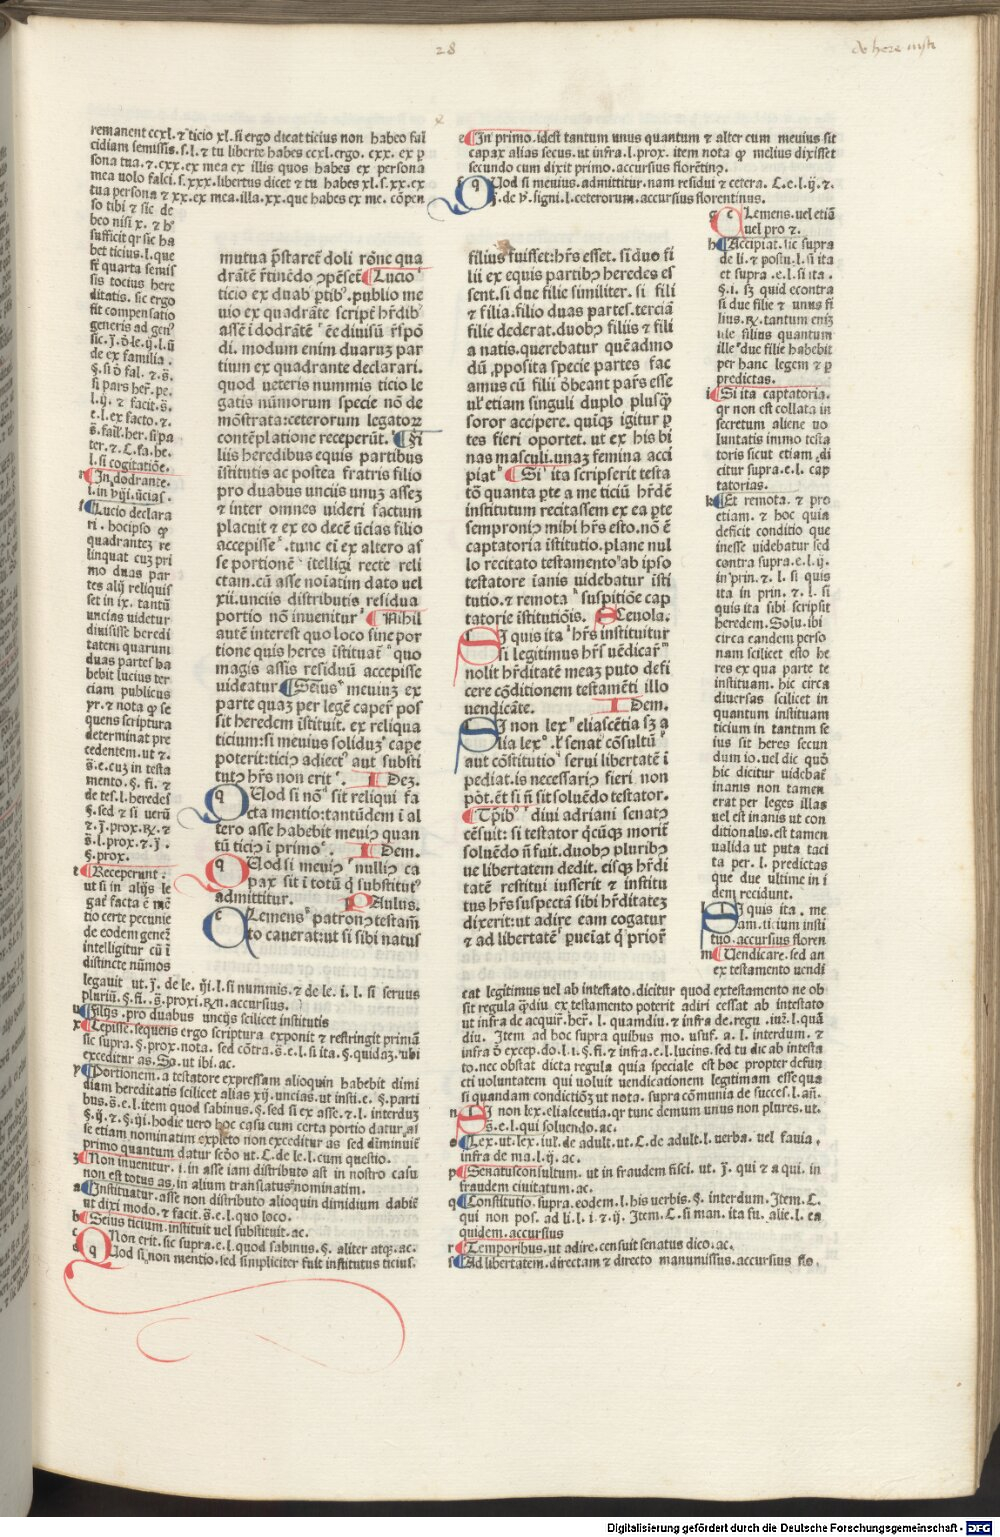 28
de here insti
remanent ccxl. ⁊ ticio xl. si ergo dicat ticius non habeo fal
cidiam semissis. s. l. ⁊ tu liberte habes ccxl. ergo. cxx. ex p
sona tua. ⁊. cxx. ex mea ex illis quos habes ex persona
mea uolo falci. s. xxx. libertus dicet ⁊ tu habes xl. s. xx. ex
tua persona ⁊ xx. ex mea. illa. xx. que habes ex me. cōpen
so tibi ⁊ sic de
beo nisi x. ⁊ hꝰ
sufficit qr sic ha
bet ticius. l. que
sit quarta semis
sis totius here
ditatis. sic ergo
fit compensatio
generis ad genꝰ
sic. j. ō. le. ij. l. ū
de ex familia.
§. si ō fal. ⁊ s̄.
si pars her. pe.
l. ij. ⁊ facit. s̄.
e. l. ex facto. ⁊.
s̄. fail. her. si pa
ter. ⁊. C. fa. he.
l. si cogitatiōe.
r In dodrante.
i. in viiij. ūcias.
s Lucio declara
ri. hoc ipso qͥ
quadrantez re
linquat cuz pri
mo duas par
tes alij reliquis
set in ix. tantū
uncias uidetur
diuisisse heredi
tatem quarum
duas partes ha
bebit lucius ter
ciam publicus
ꝛc. ⁊ nota qͥ se
quens scriptura
determinat pre
cedentem. ut ⁊.
s̄. e. cuz in testa
mento. §. fi. ⁊
de tes. l. heredes
§. sed ⁊ si uerū
⁊. j. prox. ꝶ. ⁊
s̄. l. prox. ⁊. j.
§. prox.
t Receperunt.
ut si in alijs le
gat̄ facta ē mē
tio certe pecunie
de eodem genez
intelligitur cū ī
distincte nūmos
legauit ut. j. de le. iij. l. si nummis. ⁊ de le. i. l. si seruus
plurium. §. fi. s̄. proxi. ꝶn. accursius.
u Filijs. pro duabus uncijs scilicet institutis
x Cepisse. sequens ergo scriptura exponit ⁊ restringit primā
sic supra. §. prox. nota. sed cōtra. s̄. e. l. si ita. §. quidaz. ubi
exceditur as. So. ut ibi. ac.
y Portionem. a testatore expressam alioquin habebit dimi
diam hereditatis scilicet alias xij. uncias. ut insti. e. §. parti
bus. s̄. e. l. item quod sabinus. §. sed si ex asse. ⁊. l. interduz
§. ij. ⁊. §. iij. hodie uero hoc casu cum certa portio datur al
se etiam nominatim expleto non exceditur as sed diminuit̄
primo quantum datur scōo ut. C. de le. l. cum questio.
z Non inuenitur. i. in asse iam distributo ast in nostro casu
non est totus as. in alium translatus nominatim.
a Instituatur. asse non distributo alioquin dimidium dabit̄
ut dixi modo. ⁊ facit. s̄. e. l. quo loco.
b Seius ticium. instituit uel substituit. ac.
c Non erit. sic supra. e. l. quod sabinus. §. aliter atqꝫ. ac.
d Quod si non mentio. sed simpliciter fuit institutus ticius.
mutua p̄staret̄ doli rōne qua
drātē r̄tinēdo ꝯpēset̄ Lucioˢ
ticio ex duab ꝑtibꝰ. publio me
uio ex quadrāte script̄ hr̄dibꝰ
assē ī dodrātēʳ ēē diuisū r̄spō
di. modum enim duaruz par
tium ex quadrante declarari.
quod ueteris nummis ticio le
gatis nūmorum specie nō de
mōstrata: ceterorum legatoꝝ
contēplatione receperūt.ᵗ Fi
liis heredibus equis partibus
īstitutis ac postea fratris filio
pro duabus unciis unuz assez
⁊ inter omnes uideri factum
placuit ⁊ ex eo decē ūcias filio
accepisseˣ. tunc ei ex altero as
se portionēʸ itelligi recte reli
ctam. cū asse noīatim dato uel
xii. unciis distributis residua
portio nō inuenitur ᶻ Nihil
autē interest quo loco sine por
tione quis heres īstituat̄ ᵃ quo
magis assis residuū accepisse
uideatur Seiusᵇ meuiuz ex
parte quaz per legē caper̄ pos
sit heredem īstituit. ex reliqua
ticium: si meuius soliduz cape̅
poterit: ticiꝰ adiectꝰ aut substi
tutꝰ hr̄s non eritᶜ. Idez.
Quod si nōᵈ sit reliqui fa
cta mentio: tantūdem ī al
tero asse habebit meuiꝰ quan
tū ticiꝰ ī primoᵉ. Idem.
Quod si meuiꝰ ᶠ nulliꝰ ca
pax sit ī totū q̄ substitutꝰ
admittitur. Paulus.
Clemensᵍ patronꝰ testam̄
to cauerat: ut si sibi natus
e In primo. idest tantum unus quantum ⁊ alter cum meuius sit
capax alias secus. ut infra. l. prox. item nota qͥ melius dixisset
secundo cum dixit primo. accursius florētinꝰ.
Quod si meuius. admittitur. nam residui ⁊ cetera. C. e. l. ij. ⁊.
j. de v̄. signi. l. ceterorum. accursius florentinus.
filius fuisset: hr̄s esset. si duo fi
lii ex equis partibꝰ heredes es
sent. si due filie similiter. si fili
⁊ filia. filio duas partes. terciā
filie dederat. duobꝰ filiis ⁊ fili
a natis. querebatur quēadmo
dū ꝓposita specie partes fac
amus cū filii ōbeant par̄s esse
ul̄ etiam singuli duplo plusq̄
soror accipere. quīqꝫ igitur ꝑ
tes fieri oportet. ut ex his bi
nas masculi. unaz femina acci
piatʰ Siⁱ ita scripserit testa
tō quanta ꝑte a me ticiū hr̄dē
institutum recitassem ex ea ꝑte
semproniꝰ mihi hr̄s esto. nō ē
captatoria īstitutio. plane nul
lo recitato testamento ab ipso
testatore īanis uidebatur īsti
tutio. ⁊ remotaᵏ suspitiōe cap
tatorie īstitutiōis. Sceuola.
Si quis itaˡ hr̄s instituitur
si legitimus hr̄s uēdicar̄ᵐ
nolit hr̄ditatē meaz puto defi
cere cōditionem testamēti illo
uendicāte. Idem.
Si non lexⁿ eliascētia sz a
lia lexᵒ. l̄ senatꝰ cōsultūᵖ
aut cōstitutioᑫ serui libertatē ī
pediat. is necessariꝰ fieri non
pōt. et si n̄ sit soluēdo testator.
Tp̄ibꝰʳ diui adriani senatꝰ
cēsuit: si testator q̄cūqꝫ morit̄
soluēdo n̄ fuit. duobꝰ pluribꝰ
ue libertatem dedit. eisqꝫ hr̄di
tatē restitui iusserit ⁊ institu
tus hr̄s suspectā sibi hr̄ditatez
dixerit: ut adire eam cogatur
⁊ ad libertatēˢ ꝑueīat q̄ prior̄
g Clemens. uel etiā
uel pro ⁊.
h Accipiat. sic supra
de li. ⁊ postu. l. si ita
et supra. e. l. si ita.
§. i. sz quid econtra
si due filie ⁊ unus fi
lius. ꝶ. tantum eniz
ule filius quantum
ille due filie habebit
per hanc legem ⁊ ꝑ
predictas.
i Si ita captatoria.
qr non est collata in
secretum aliene uo
luntatis immo testa
toris sicut etiam di
citur supra. e. l. cap
tatorias.
k Et remota. ⁊ pro
etiam. ⁊ hoc quia
deficit conditio que
inesse uidebatur sed
contra supra. e. l. ij.
in prin. ⁊. l. si quis
ita in prin. ⁊. l. si
quis ita sibi scripsit
heredem. Solu. ibi
circa eandem perso
nam scilicet esto he
res ex qua parte te
instituam. hic circa
diuersas scilicet in
quantum instituam
ticium in tantum se
ius sit heres secun
dum io. uel dic quō
hic dicitur uidebat̄
inanis non tamen
erat per leges illas
uel est inanis ut con
ditionalis. est tamen
ualida ut puta taci
ta per. l. predictas
que due ultime in i
dem recidunt.
Si quis ita. me
am. ticium insti
tuo. accursius floren
m Uendicare. sed an
ex testamento uendi
cat legitimus uel ab intestato. dicitur quod ex testamento ne ob
sit regula q̄diu ex testamento poterit adiri cessat ab intestato
ut infra de acquir. her̄. l. quamdiu. ⁊ infra de. regu. iur̄. l. quā
diu. Item ad hoc supra quibus mo. usuf. a. l. interdum. ⁊
infra ō excep. do. l. i. §. fi. ⁊ infra. e. l. lucius. sed tu dic ab intesta
to. nec obstat dicta regula quia speciale est hoc propter defun
cti uoluntatem qui uoluit uendicationem legitimam esse qua
si quandam condictioz ut nota. supra cōmunia de succes. l. an̄.
n Si non lex. eliascentia. qr tunc demum unus non plures. ut.
s̄. e. l. qui soluendo. ac.
o Lex. ut. lex. iul. de adult. ut. C. de adult. l. uerba. uel fauia.
infra de ma. l. ij. ac.
p Senatusconsultum. ut in fraudem fisci. ut. j. qui ⁊ a qui. in
fraudem ciuitatum. ac.
q Constitutio. supra. eodem. l. his uerbis. §. interdum. Item. C.
qui non pos. ad li. l. i. ⁊. ij. Item. C. si man. ita fu. alie. l. ea
quidem. accursius
r Temporibus. ut adire. censuit senatus dico. ac.
s Ad libertatem. directam ⁊ directo manumissus. accursius flo.
Digitalisierung gefördert durch die Deutsche Forschungsgemeinschaft - DFG